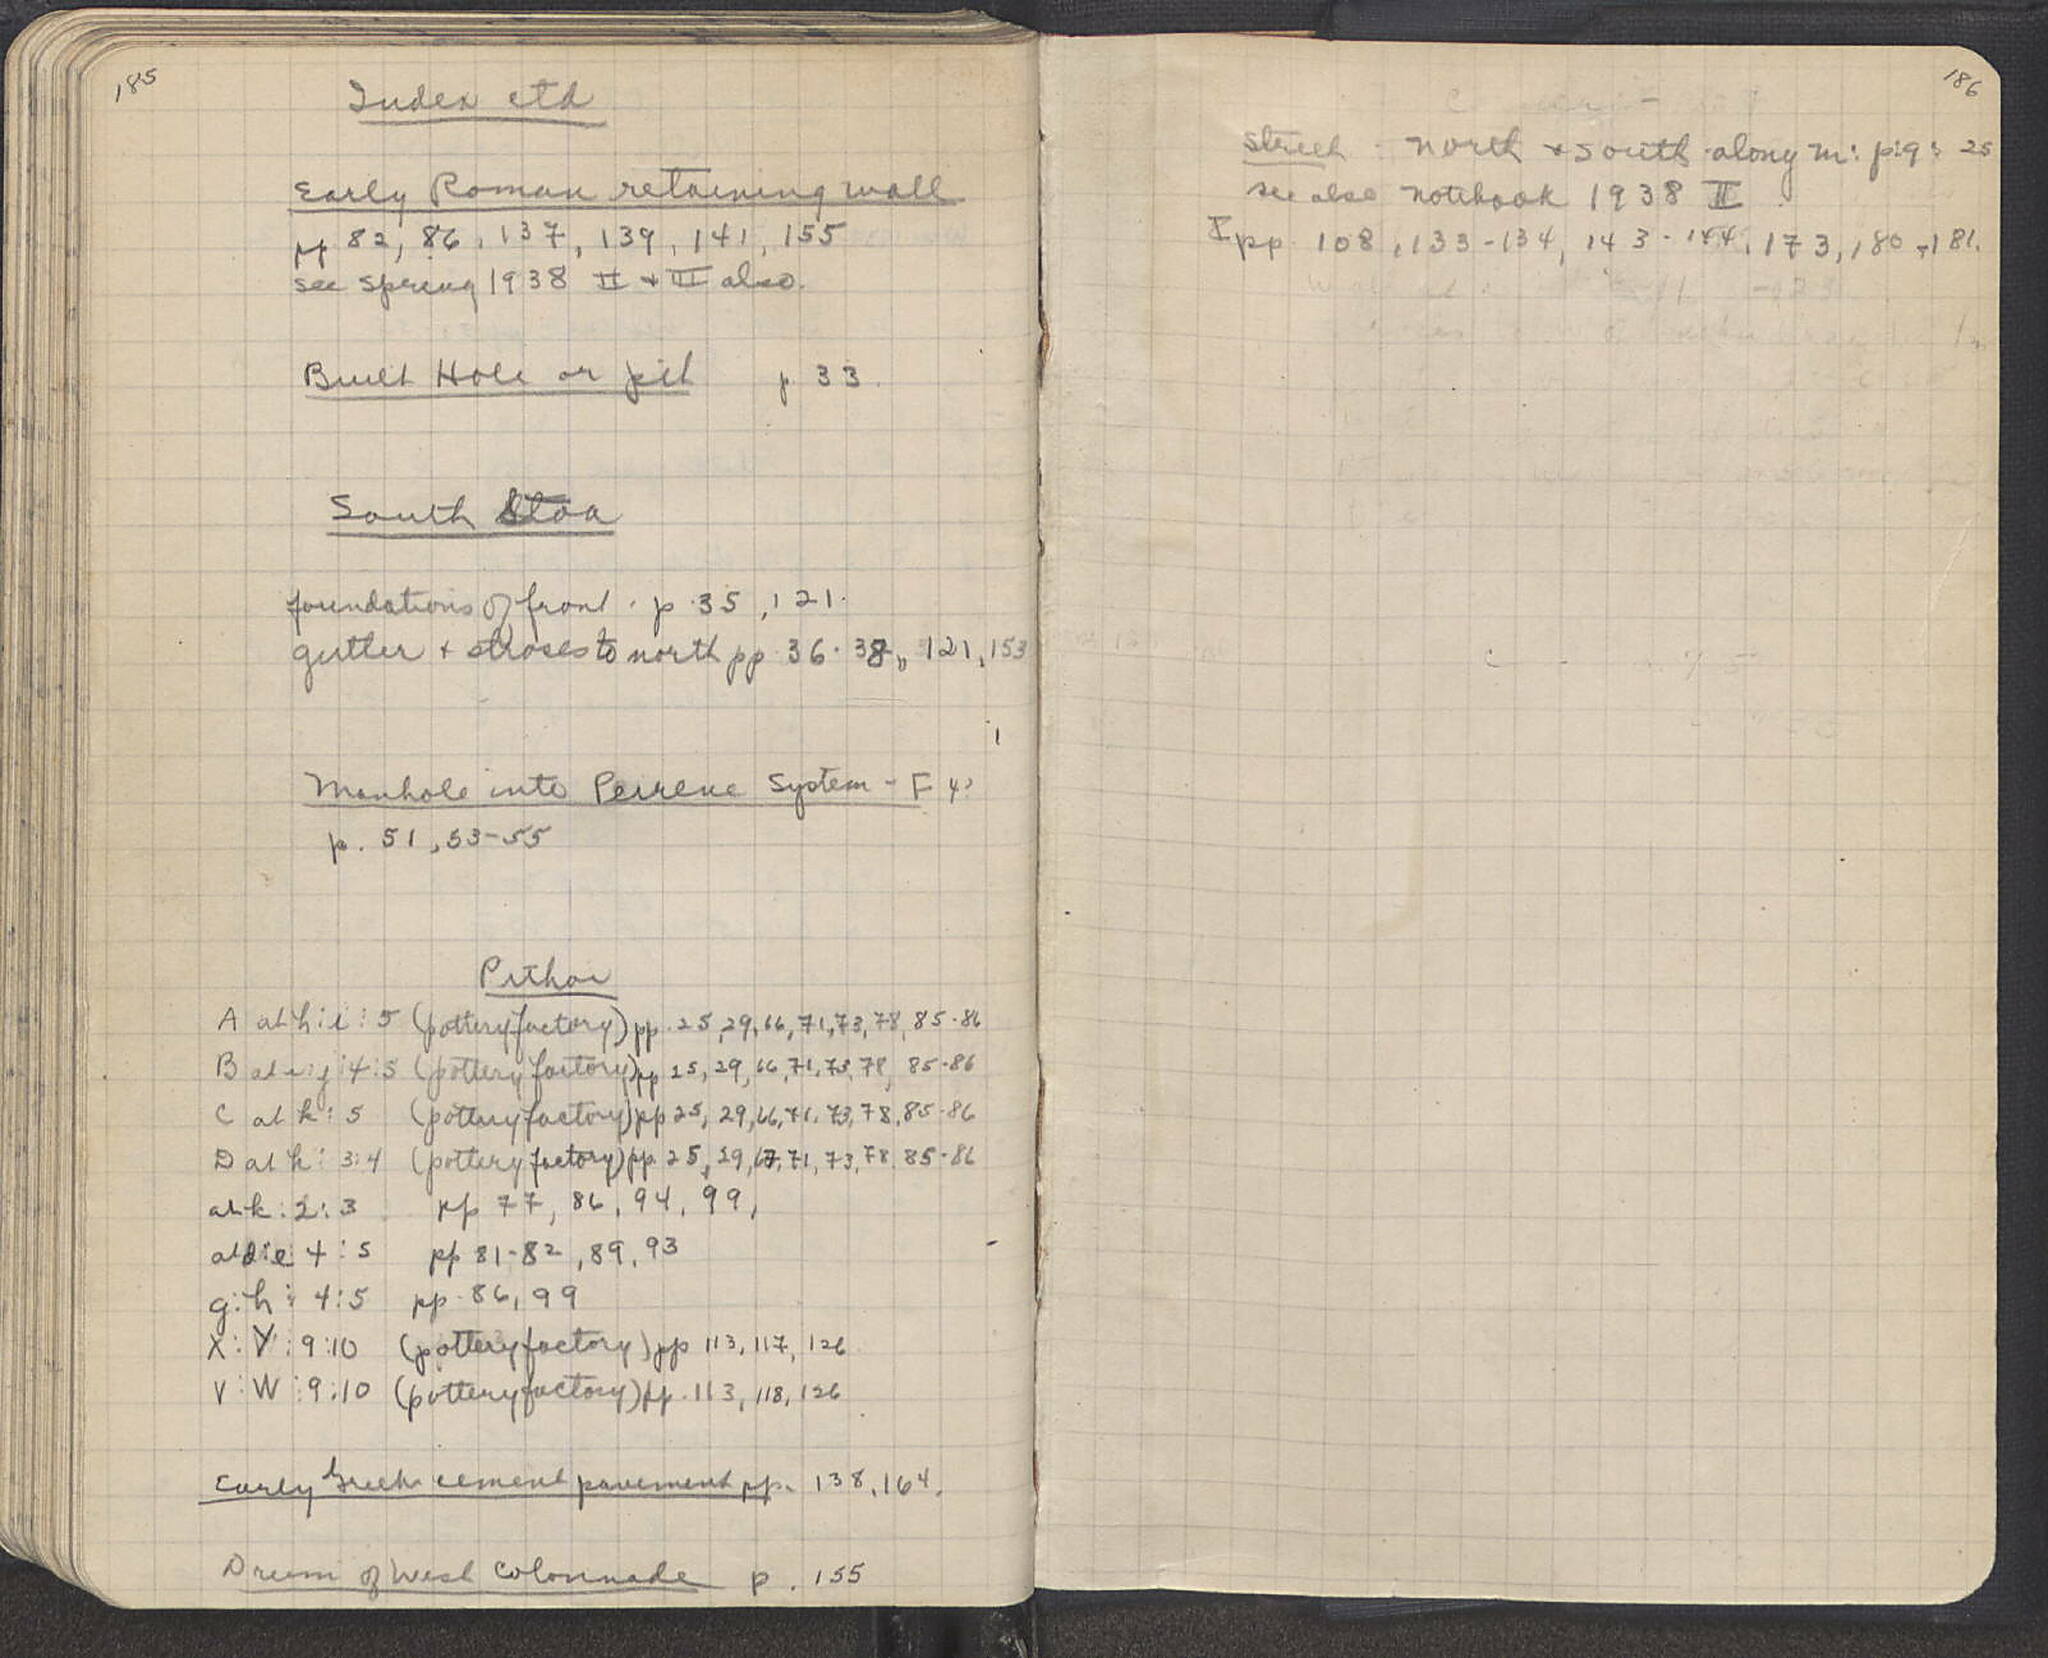 185
Index ctd
Early Roman retaining wall
pp 82, 86, 137, 139, 141, 155
see spring 1938 II + III also.
Built Hole or pit p. 33.
South Stoa
foundations of front. p. 35, 121.
gutter + stroses to north pp. 36-38, 121, 153
Manhole into Peirene System - F
p. 51, 53-55
Pithoi
A at h:i:5 (pottery factory) pp. 25, 29, 66, 71, 73, 78, 85-86
B at i:j:4:5 (pottery factory) pp 25, 29, 66, 71, 73, 78, 85-86
C at k:5 (pottery factory) pp 25, 29, 66, 71, 73, 78, 85-86
D at k:3:4 (pottery factory) pp. 25, 29, 67, 71, 73, 78, 85-86
at k:2:3 pp 77, 86, 94, 99,
at d:e 4:5 pp 81-82, 89, 93
g:h: 4:5 pp. 86, 99
X:Y:9:10 (pottery factory) pp 113, 117, 126
V:W:9:10 (pottery factory) pp. 113, 118, 126
Early Greek cement pavement pp. 138, 164.
Drum of West Colonnade p. 155
186
Street - North + South along m: p:q: 25
see also notebook 1938 II
pp. 108, 133-134, 143-144, 173, 180-181.